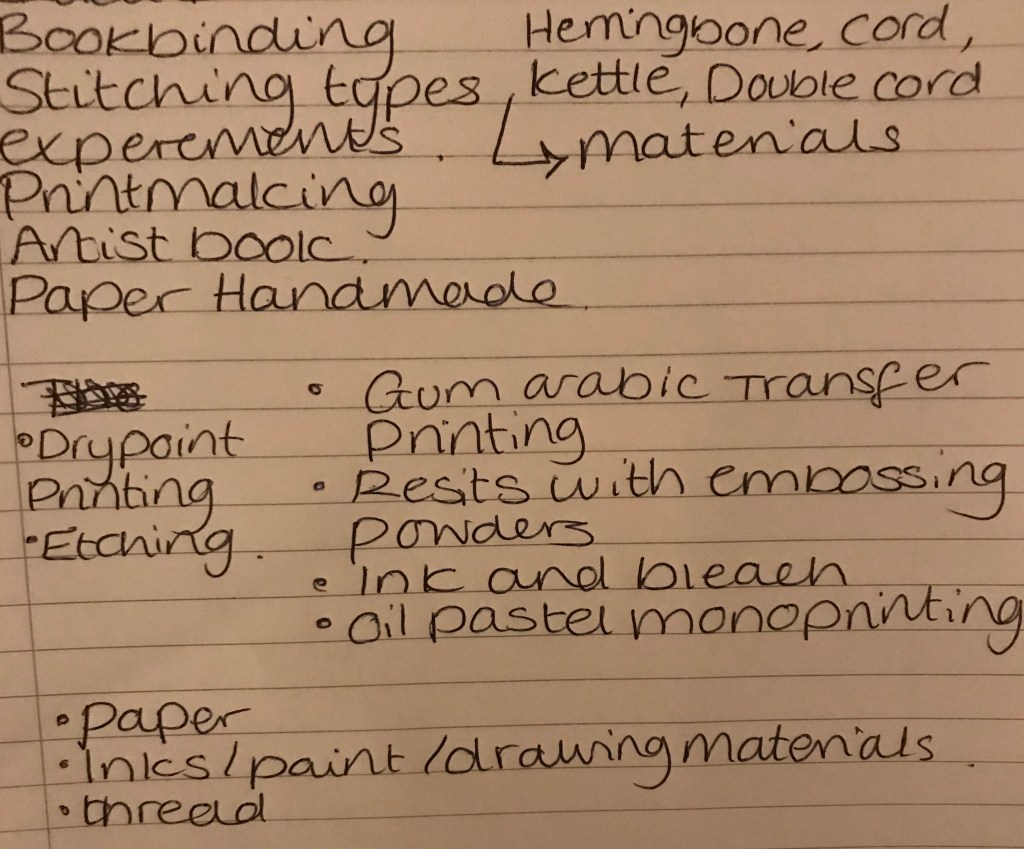 Bookbinding
Stitching types
experements.
Printmaking
Artist book.
Paper Handmade.
Herringbone, cord,
, kettle, Double cord
↳ materials
• Drypoint
Printing
• Etching.
• Gum arabic Transfer
Printing
• Resits with embossing
powders
• Ink and bleach
• Oil pastel monoprinting
• Paper
• Inks / paint / drawing materials.
• thread